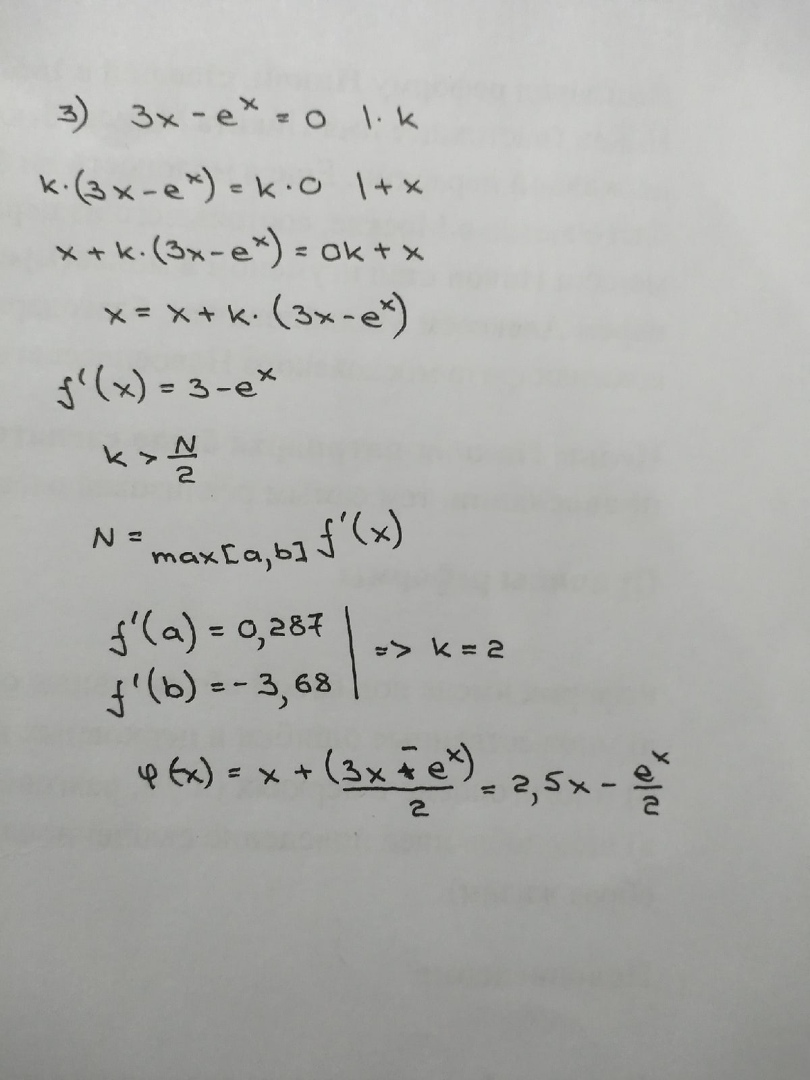 3) 3x - eˣ = 0 | · k
k·(3x - eˣ) = k·0 | + x
x + k·(3x - eˣ) = 0k + x
x = x + k·(3x - eˣ)
f'(x) = 3 - eˣ
k > N/2
N = max[a,b] f'(x)
f'(a) = 0,287
f'(b) = -3,68 | => k = 2
φ(x) = x + (3x - eˣ)/2 = 2,5x - eˣ/2